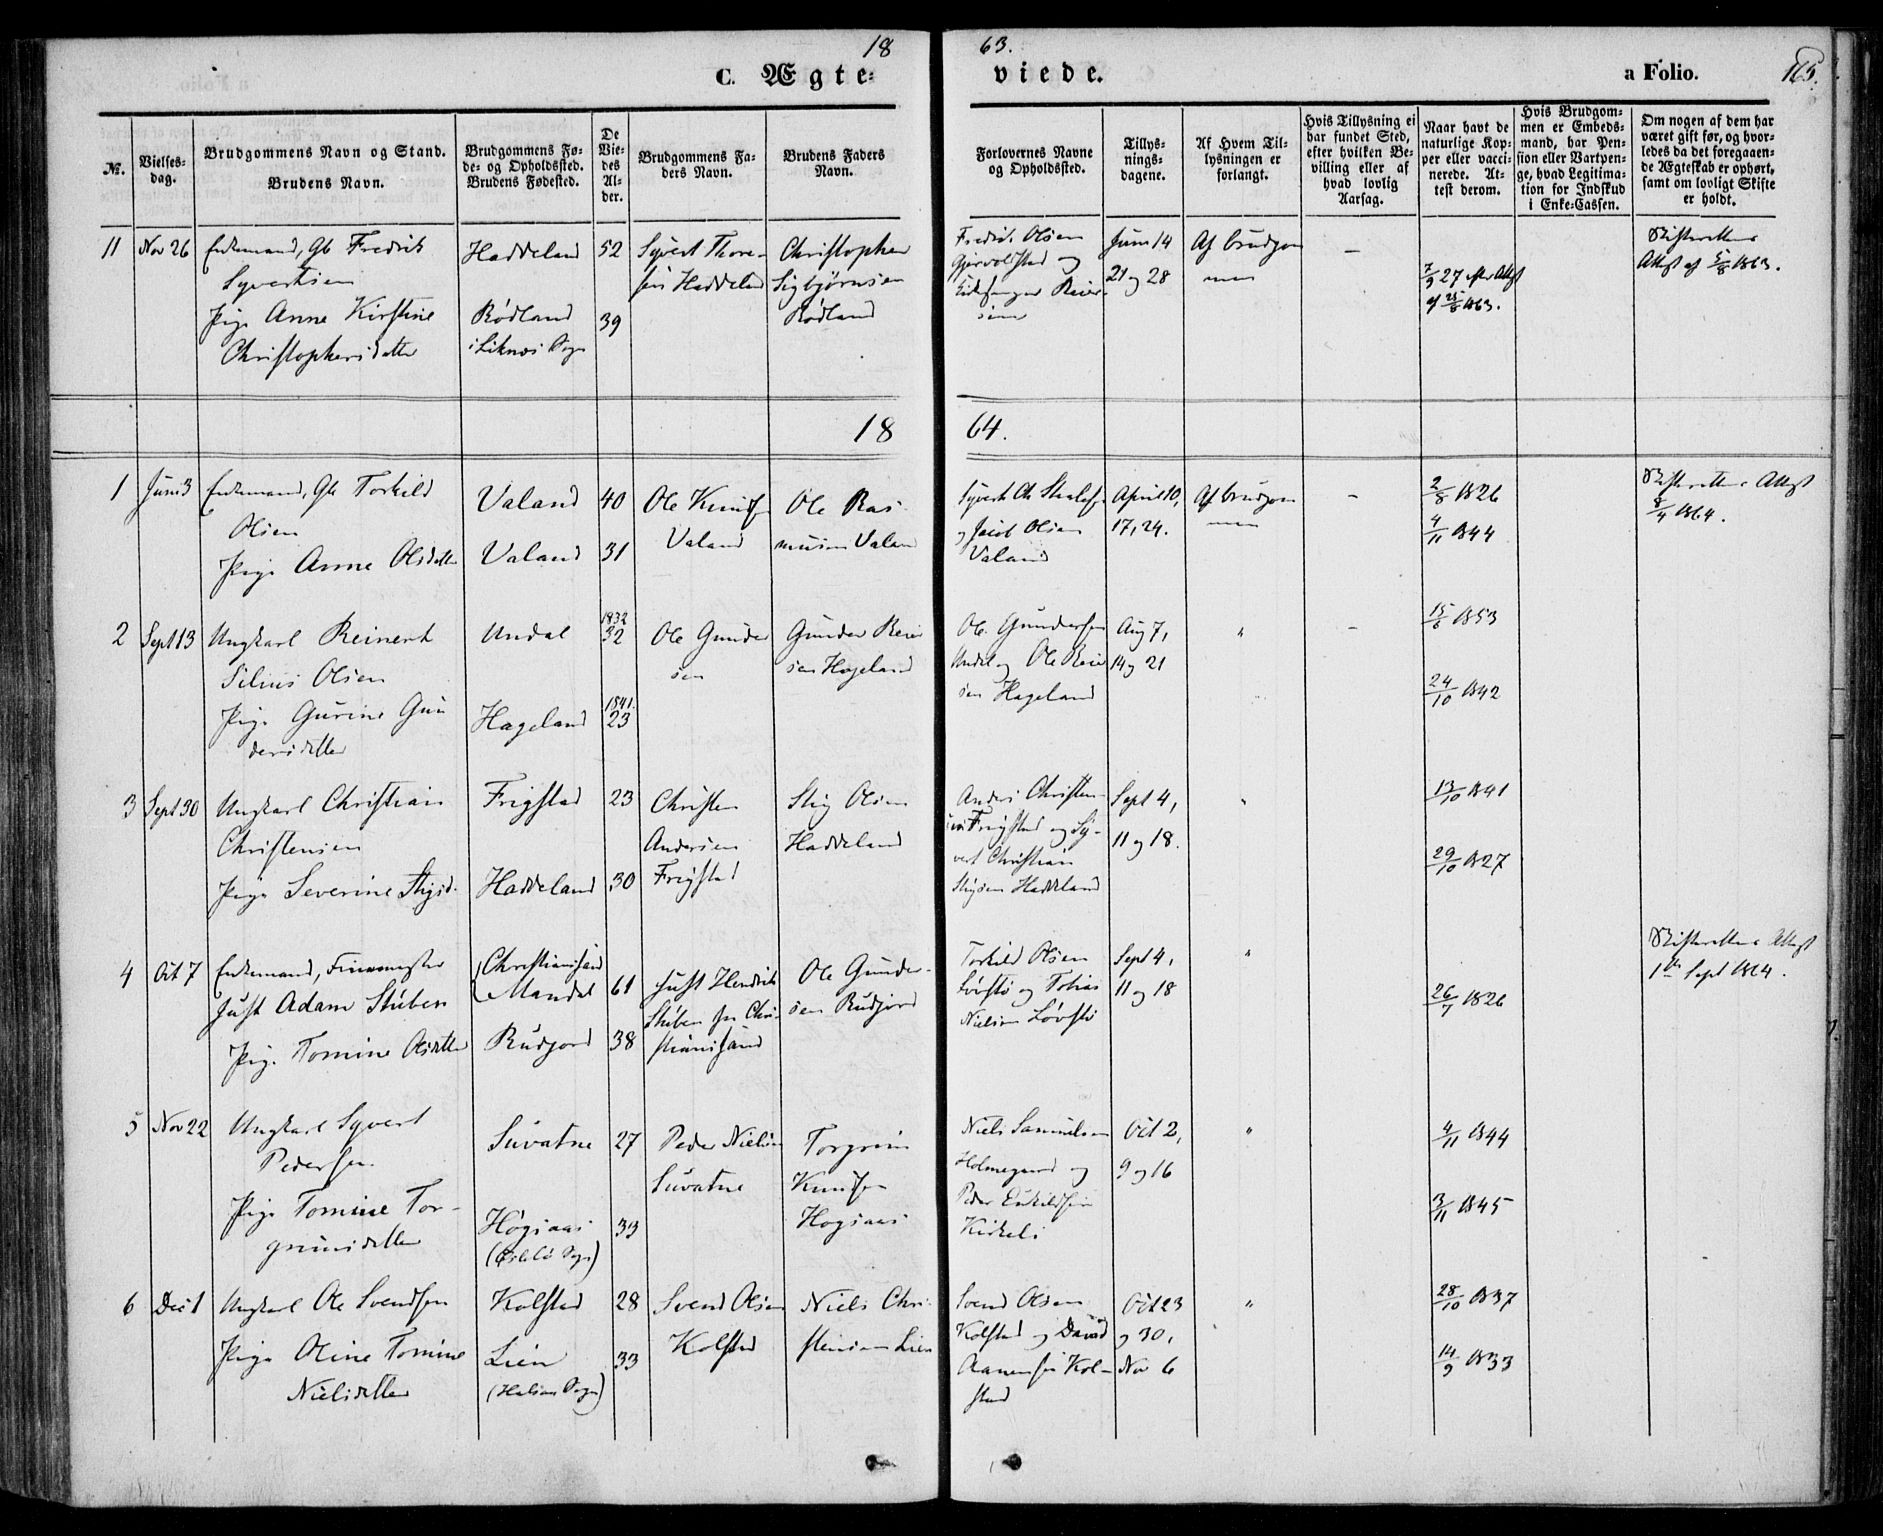 18 63.
C. Ægte- viede. a Folio. 165.
№.
Vielses-
dag.
Brudgommens Navn og Stand.
Brudens Navn.
Brudgommens Fø-
de- og Opholdssted.
Brudens Fødested.
De
Vie-
des
Al-
der.
Brudgommens Fa-
ders Navn.
Brudens Faders
Navn.
Forlovernes Navne
og Opholdssted.
Tillys-
nings-
dagene.
Af Hvem Til-
lysningen er
forlangt.
Hvis Tillysning ei
har fundet Sted,
efter hvilken Be-
villing eller af
hvad lovlig
Aarsag.
Naar havt de
naturlige Kop-
per eller vacci-
nerede. At-
test derom.
Hvis Brudgom-
men er Embeds-
mand, har Pen-
sion eller Vartpen-
ge, hvad Legitima-
tion for Indskud
i Enke-Cassen.
Om nogen af dem har
været gift før, og hvor-
ledes da det foregaaen-
de Ægteskab er ophørt,
samt om lovligt Skifte
er holdt.
11
Nov 26
Enkemand, Gb Fredrik
Syvertsen
Pige Anne Kirstine
Christophersdatter
Haddeland
Rødland
i Liknæs Sogn
52
39
Syvert Thore-
sen Haddeland
Christopher
Sigbjørnsen
Rødland
Fredrik Olsen
Gjervoldstad og
Reier-
sen
Juni 14
21 og 28
Af Brudgom
men
—
7/9 27 efter Attest
af 25/6 1863.
Skifterettens
Attest af 5/8 1863.
18 64.
1
Juni 3
Enkemand, Gb Torkild
Olsen
Pige Anne Olsdatter
Valand
Valand
40
31
Ole Knuds
Valand
Ole Ras-
musen Valand
Syvert Ch
og Jacob Olsen
Valand
April 10,
17, 24.
Af Brudgom
men
–
2/8 1826
4/11 1844
Skifterettens Attest
8/4 1864.
2
Sept 13
Ungkarl Reinert
Silius Olsen
Pige Gurine Gun
dersdatter
Undal
Hageland
1832
32
1841.
23
Ole Gunder
sen
Gunder Reier
sen Hageland
Ole Gundersen
Undal og Ole Reier
sen Hageland
Aug 7,
14 og 21
"
–
15/6 1853
24/10 1842
3
Sept 30
Ungkarl Christian
Christensen
Pige Severine Stigsd.
Frigstad
Haddeland
23
30
Christen
Andersen
Frigstad
Stig Olsen
Haddeland
Anders Christen-
sen Frigstad og Sy-
vert Christian
Stigsen Haddeland
Sept 4,
11 og 18.
"
13/10 1841
29/10 1827
4
Oct 7
Enkemand,
Just Adam Stiben
Pige Tomine Olsdatter
Christianssand
Mandal
Rudjord
61
38
Just Hendrik
Stiben fra Chri-
stianssand
Ole Gunder-
sen Rudjord
Torkild Olsen
Løvstø og Tobias
Nielsen Løvstø
Sept 4,
11 og 18
"
26/7 1826
Skifterettens Attest
1ste Sept 1864.
5
Nov 22
Ungkarl Syvert
Pedersen
Pige Tomine Tor-
grimsdatter
Suvatne
Høgsaas
(Øslebø Sogn)
27
33
Peder Nielsen
Suvatne
Torgrim
Knudsen
Hogsaas
Niels Samuelsen
Holmegaard og
Peder Enkildsen
Oct 2,
9 og 16
"
4/11 1844
3/11 1845
6
Dec 1
Ungkarl Ole Svendsen
Pige Oline Tomine
Nielsdatter
Kolstad
Lien
(Halsaa Sogn)
28
33
Svend Olsen
Kolstad
Niels Chri-
stensen Lien
Svend Olsen
Kolstad og David
Aanensen Kol-
stad
Oct 23
og 30,
Nov 6
"
28/10 1837
14/9 1833